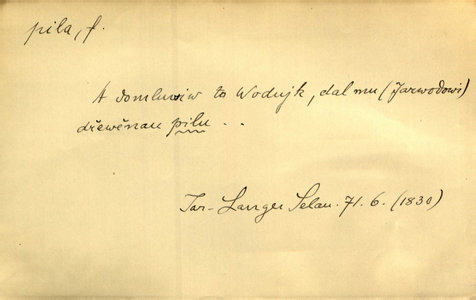 pila, f.
A domluwiw to Wodnjk, dal mu (Jarwodowi)
dřewěnau pilu . .
Jar. Langer Selan. 71. 6. (1830)